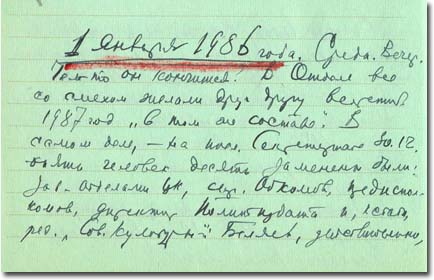 1 января 1986 года. Среда. Вечер.
Только что он кончился! В Отделе все
со смехом желали друг другу встретить
1987 год „в том же составе“. В
самом деле, – на посл. Секретариате 30.12.
опять человек десять заменены были:
зав. отделами ЦК, секр. Обкомов, предиспол-
комов, директор Политиздата и, кстати,
ред. „Сов. Культуры“ Беляев, действительно,